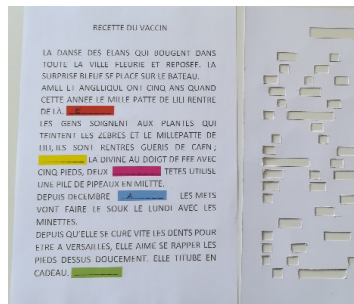 RECETTE DU VACCIN
LA DANSE DES ELANS QUI BOUGENT DANS
TOUTE LA VILLE FLEURIE ET REPOSEE. LA
SURPRISE BLEUE SE PLACE SUR LE BATEAU.
AMEL ET ANGELIQUE ONT CINQ ANS QUAND
CETTE ANNEE LE MILLE PATTE DE LILI RENTRE
DE LÀ.
LES GENS SOIGNENT AUX PLANTES QUI
TEINTENT LES ZEBRES ET LE MILLEPATTE DE
LILI, ILS SONT RENTRES GUERIS DE CAEN ;
LA DIVINE AU DOIGT DE FEE AVEC
CINQ PIEDS, DEUX TETES UTILISE
UNE PILE DE PIPEAUX EN MIETTE.
DEPUIS DECEMBRE LES METS
VONT FAIRE LE SOUK LE LUNDI AVEC LES
MINETTES.
DEPUIS QU'ELLE SE CURE VITE LES DENTS POUR
ETRE A VERSAILLES, ELLE AIME SE RAPPER LES
PIEDS DESSUS DOUCEMENT. ELLE TITUBE EN
CADEAU.